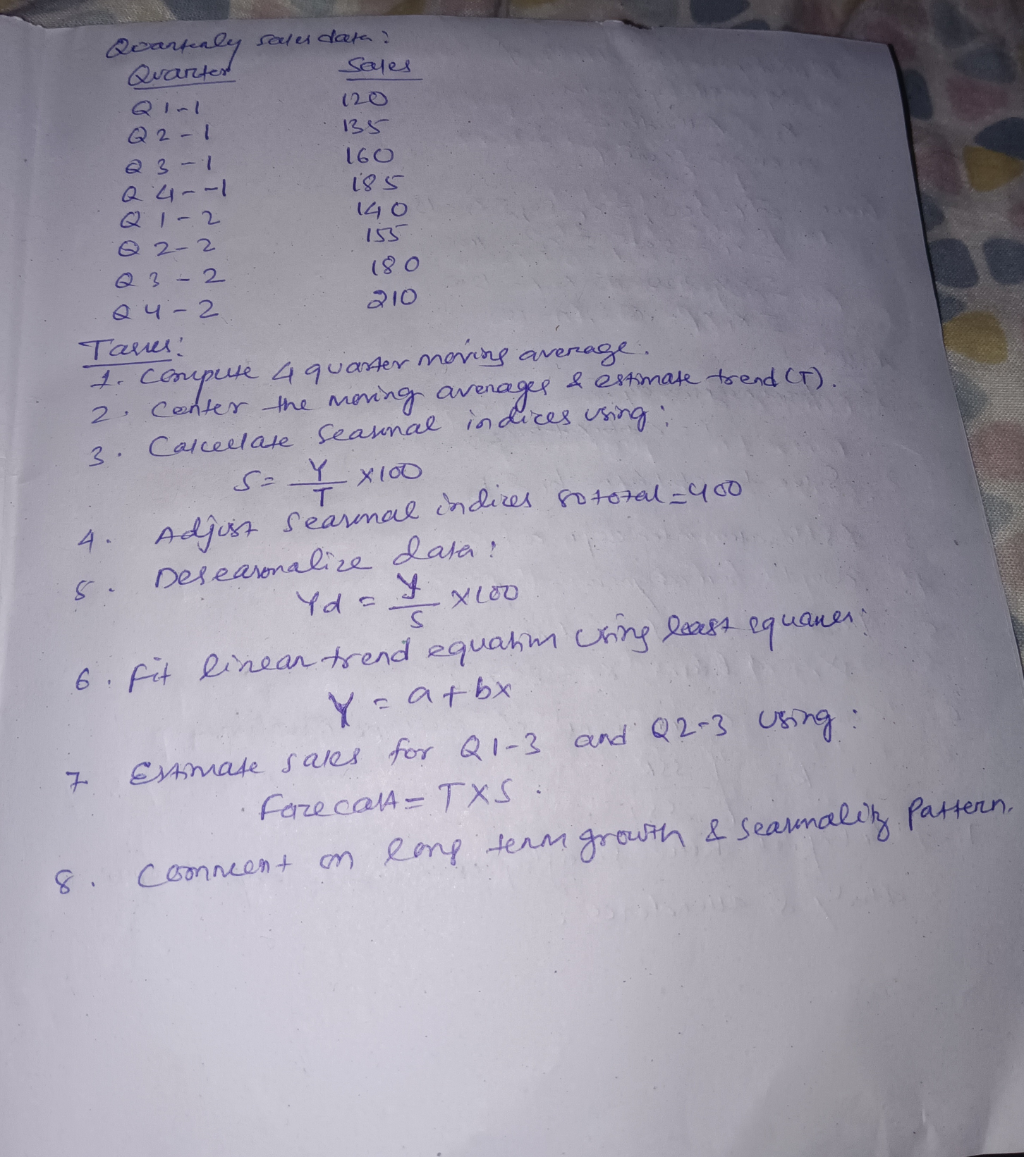 Quarterly sales data:
Quarter Sales
Q1-1 120
Q2-1 135
Q3-1 160
Q4--1 185
Q1-2 140
Q2-2 155
Q3-2 180
Q4-2 210
1. Compute 4 quarter moving average.
2. Center the moving averages & estimate trend (T).
3. Calculate seasonal indices using:
S = Y/T × 100
4. Adjust seasonal indices so total = 400
5. Deseasonalize data:
Yd = Y/S × 100
6. Fit linear trend equation using least squares:
Y = a + bx
7 Estimate sales for Q1-3 and Q2-3 using:
Forecast = T X S.
8. Comment on long term growth & seasonality pattern.